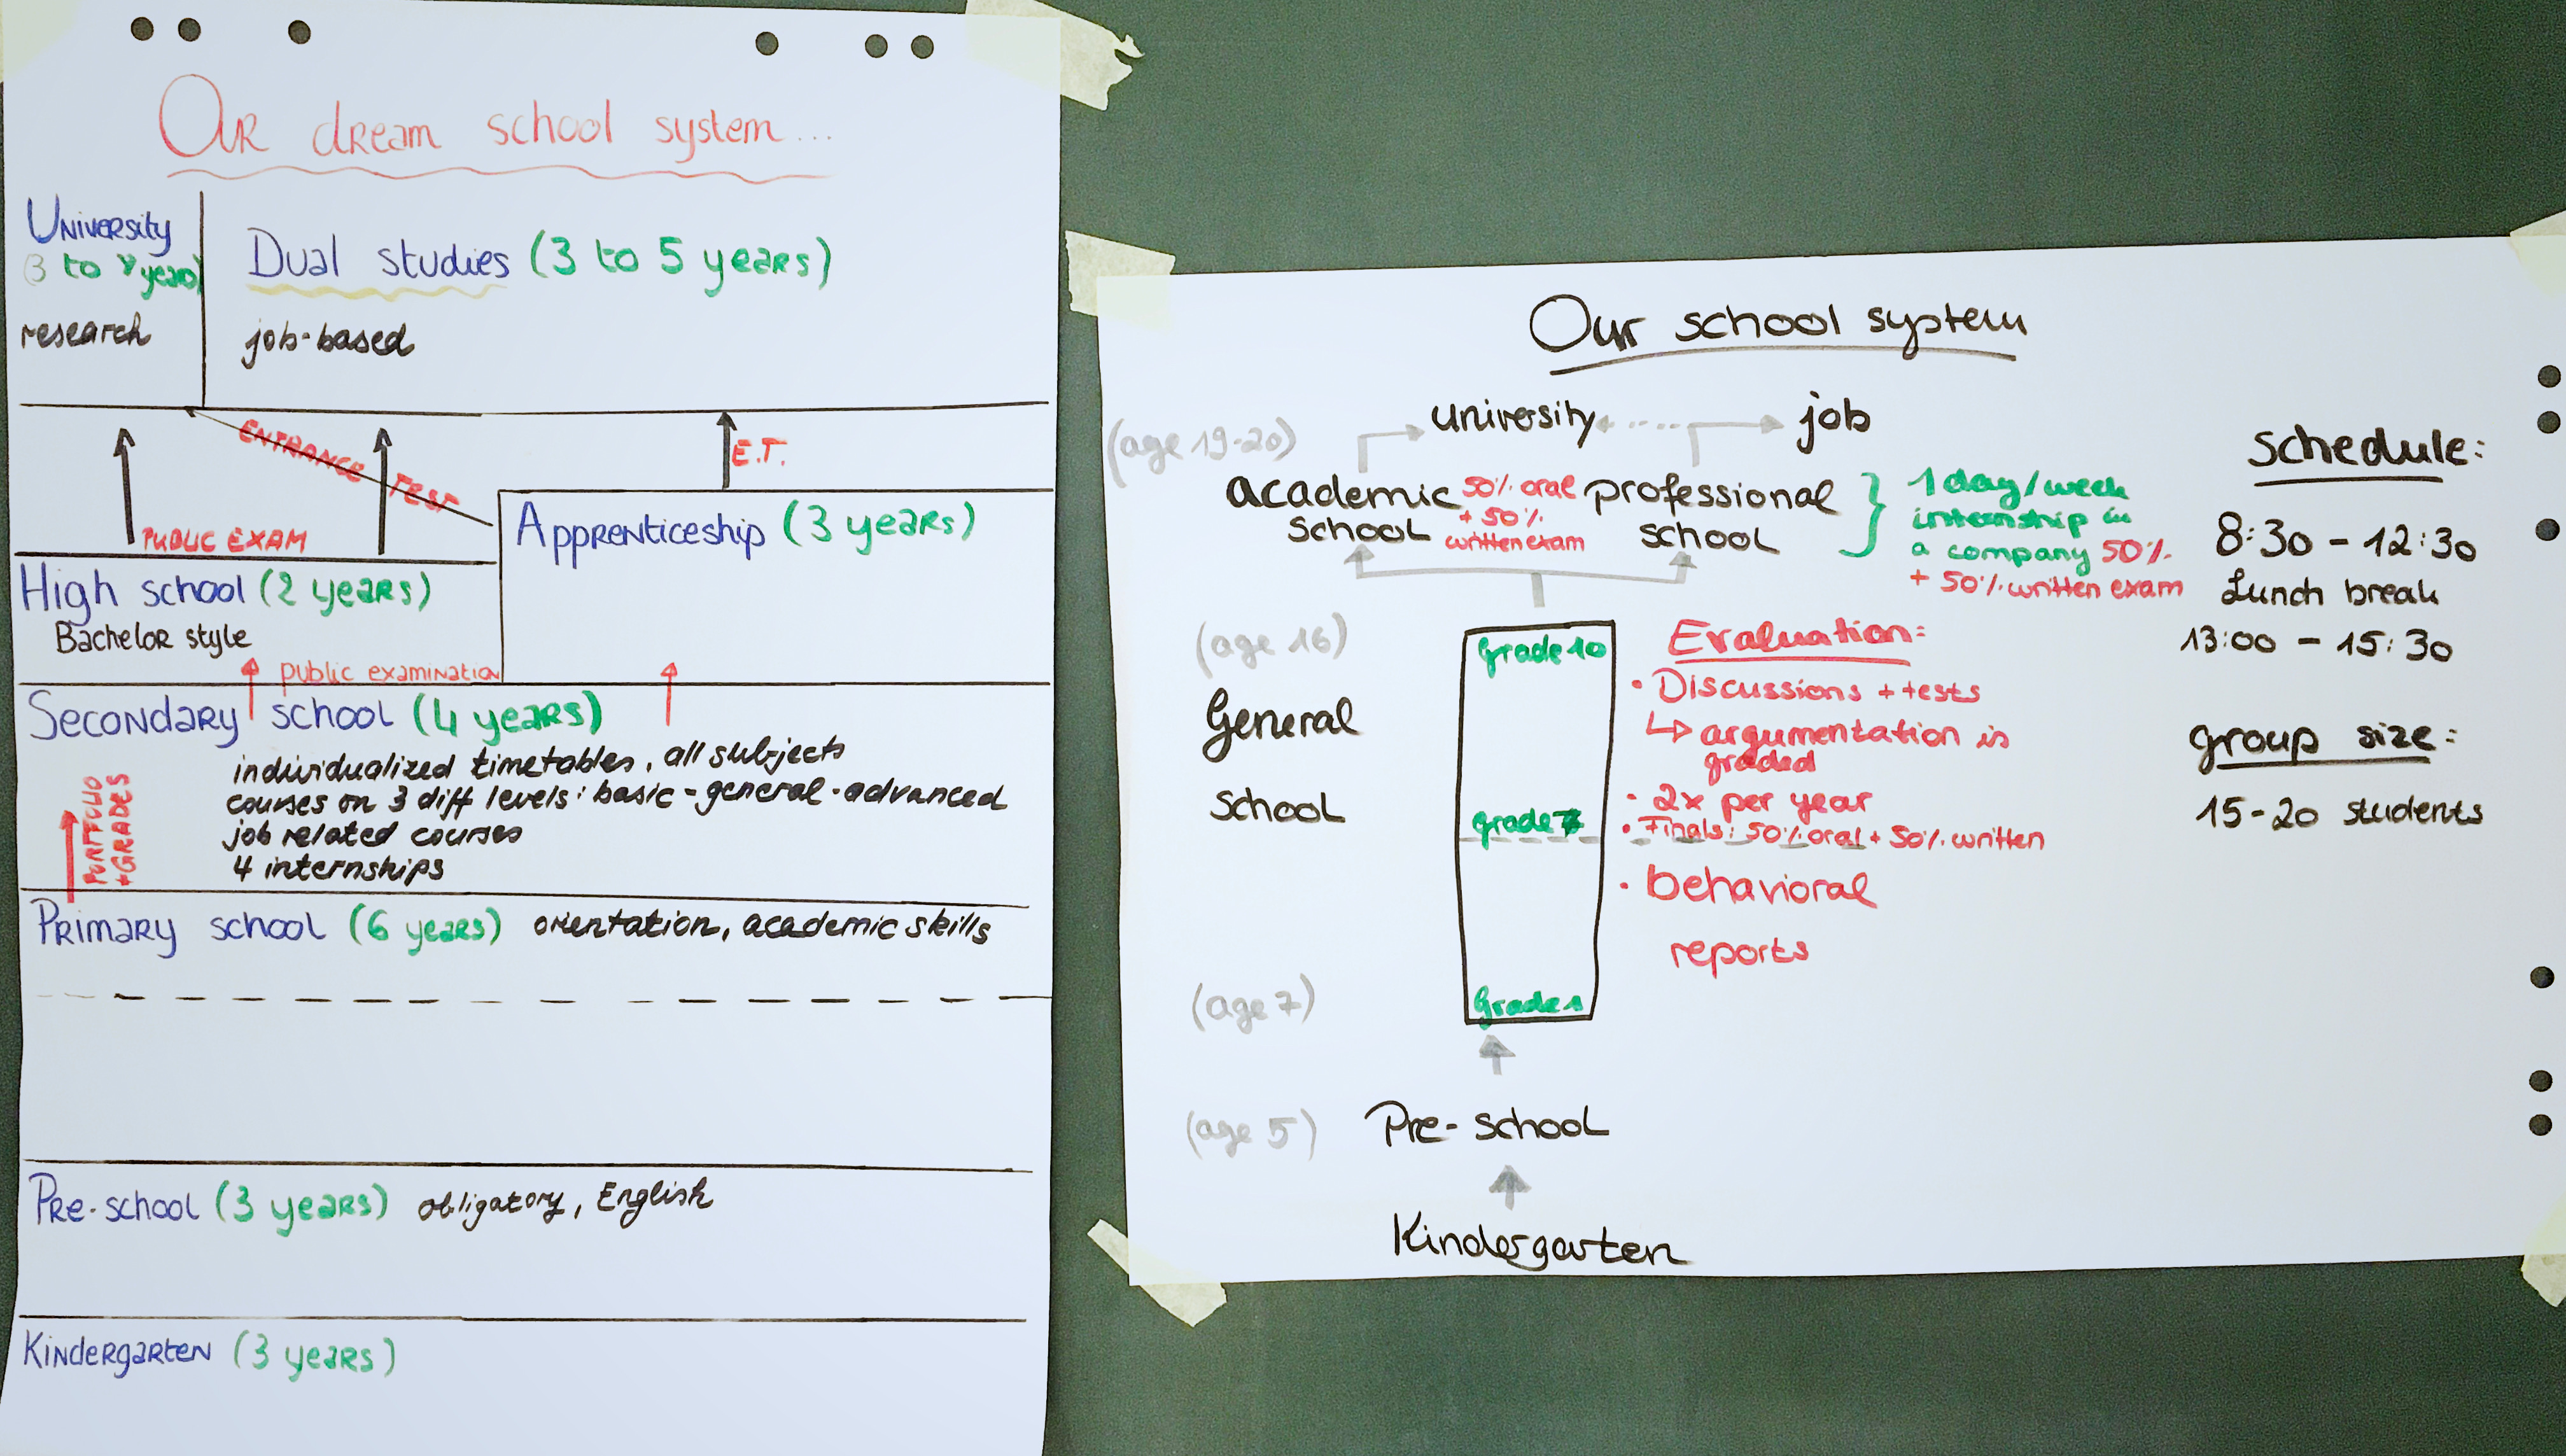 Our dream school system...
University
research
Dual studies (3 to 5 years)
job-based
ENTRANCE TEST
E.T.
PUBLIC EXAM
Apprenticeship (3 years)
High school (2 years)
Bachelor style
public examination
Secondary school (4 years)
individualized timetables, all subjects
courses on 3 diff levels: basic - general - advanced
job related courses
4 internships
PORTFOLIO
+GRADES
Primary school (6 years) orientation, academic skills
Pre-school (3 years) obligatory, English
Kindergarten (3 years)
Our school system
(age 19-20)
university
job
academic
school
50% oral
+ 50%
written exam
professional
school
1 day/week
internship in
a company 50%
+ 50% written exam
(age 16)
General
school
(age 7)
grade 10
grade 7
Grade 1
Evaluation:
• Discussions + tests
↳ argumentation is
graded
• 2x per year
• Finals: 50% oral + 50% written
• behavioral
reports
(age 5)
Pre-school
Kindergarten
Schedule:
8:30 - 12:30
Lunch break
13:00 - 15:30
group size:
15-20 students